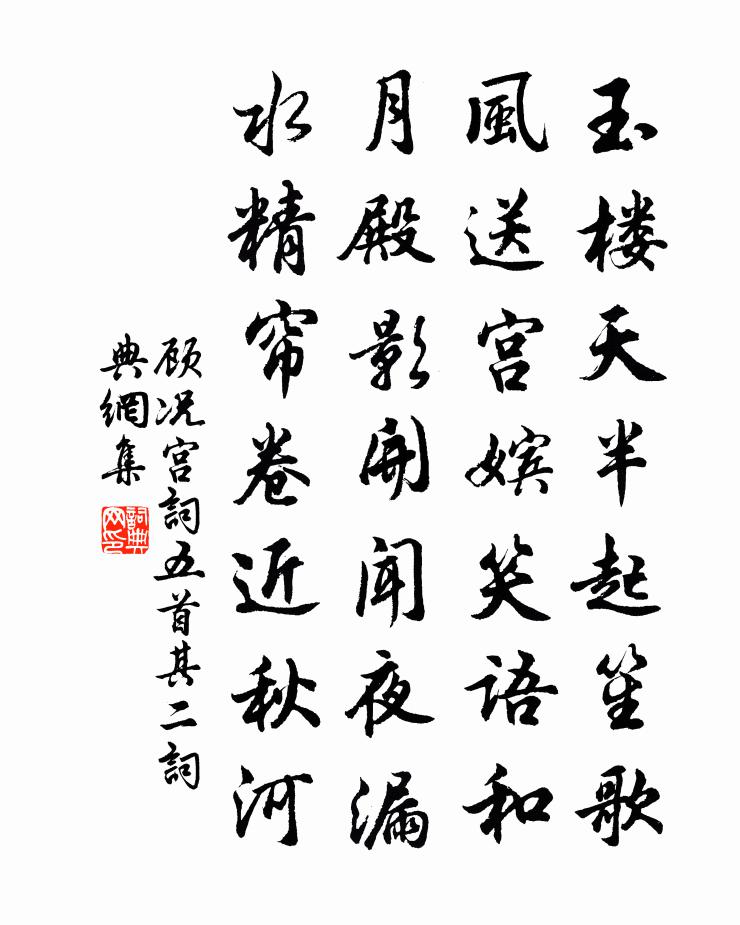 玉楼天半起笙歌
風送宫嬪笑語和
月殿影開聞夜漏
水精帘卷近秋河
顾况宫詞五首其二詞
典網集
詞典网印